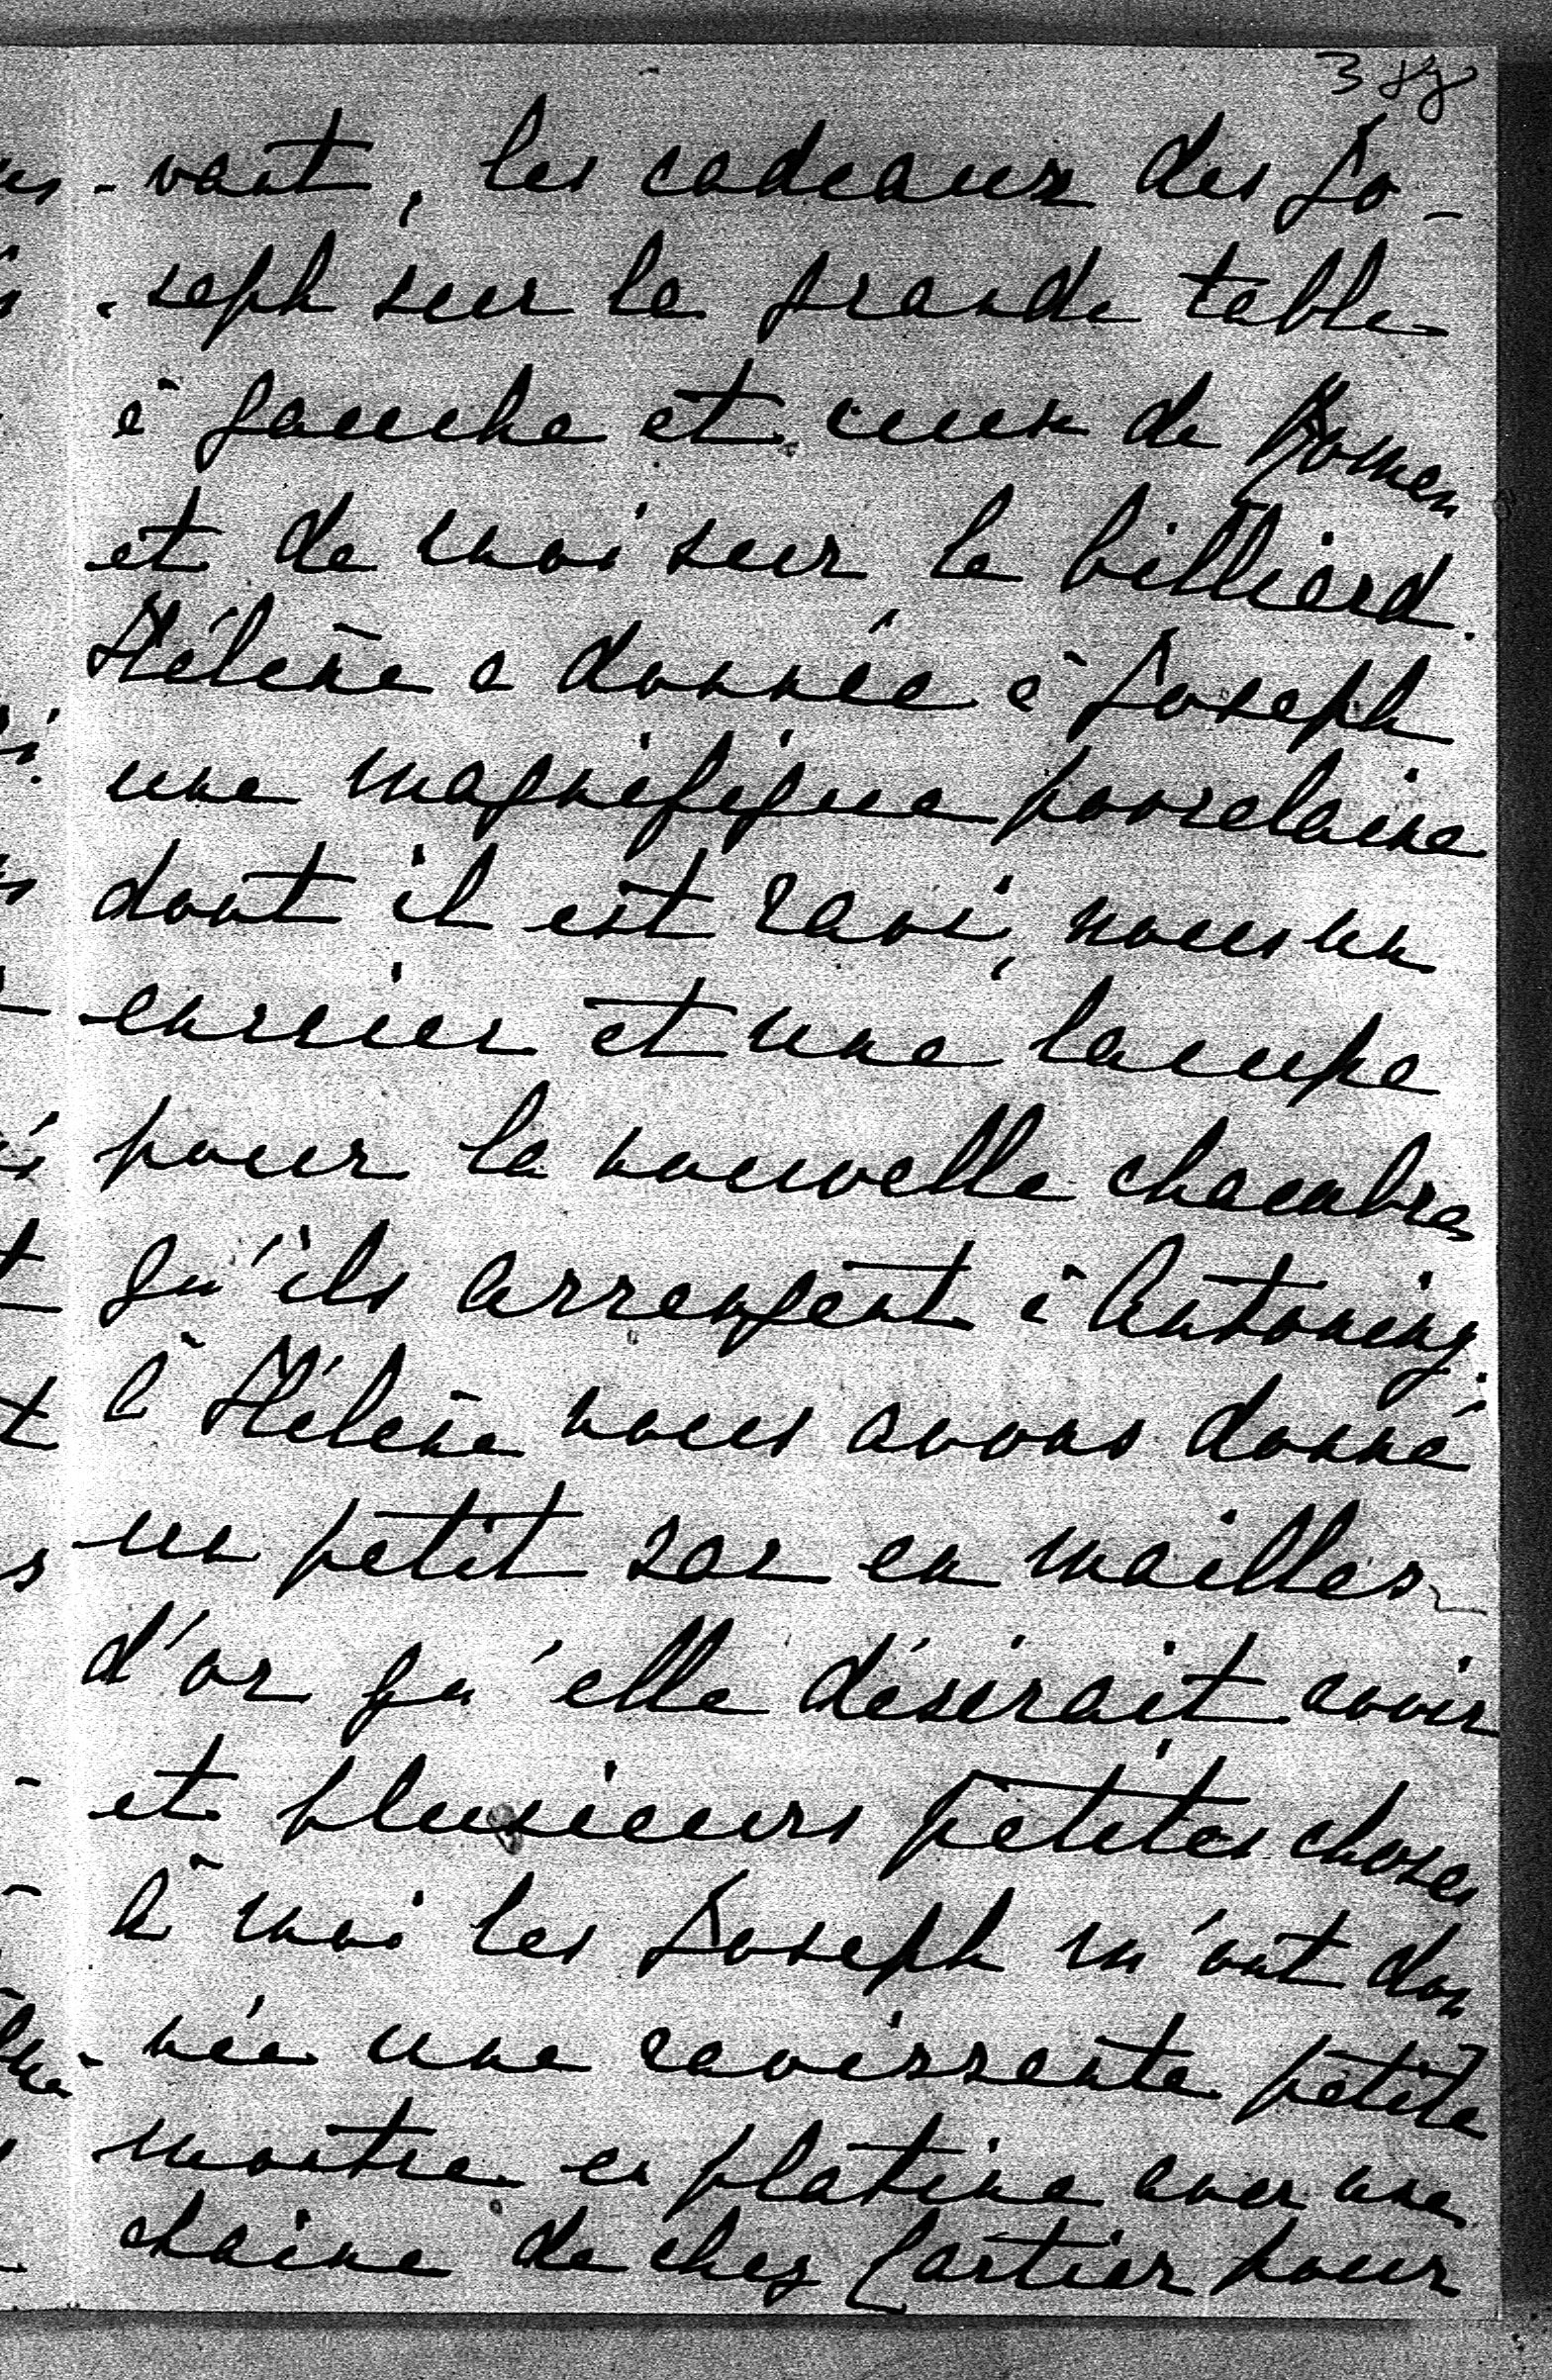 388
-vant, les cadeaux des Jo-
-seph sur la grande table
à gauche et ceux de Roman
et de moi sur le billiard.
Hélène a donnée à Joseph
une magnifique porcelaine
dont il est ravi, nous un
encrier et une lampe
pour la nouvelle chambre
qu'ils arrangent à Antoniny.
à Hélène nous avons donné
un petit sac en mailles
d'or qu'elle désirait avoir
et plusieurs petites choses
à moi les Joseph m'ont don
-née une ravissante petite
montre en platine avec une
chaine de chez Cartier pour